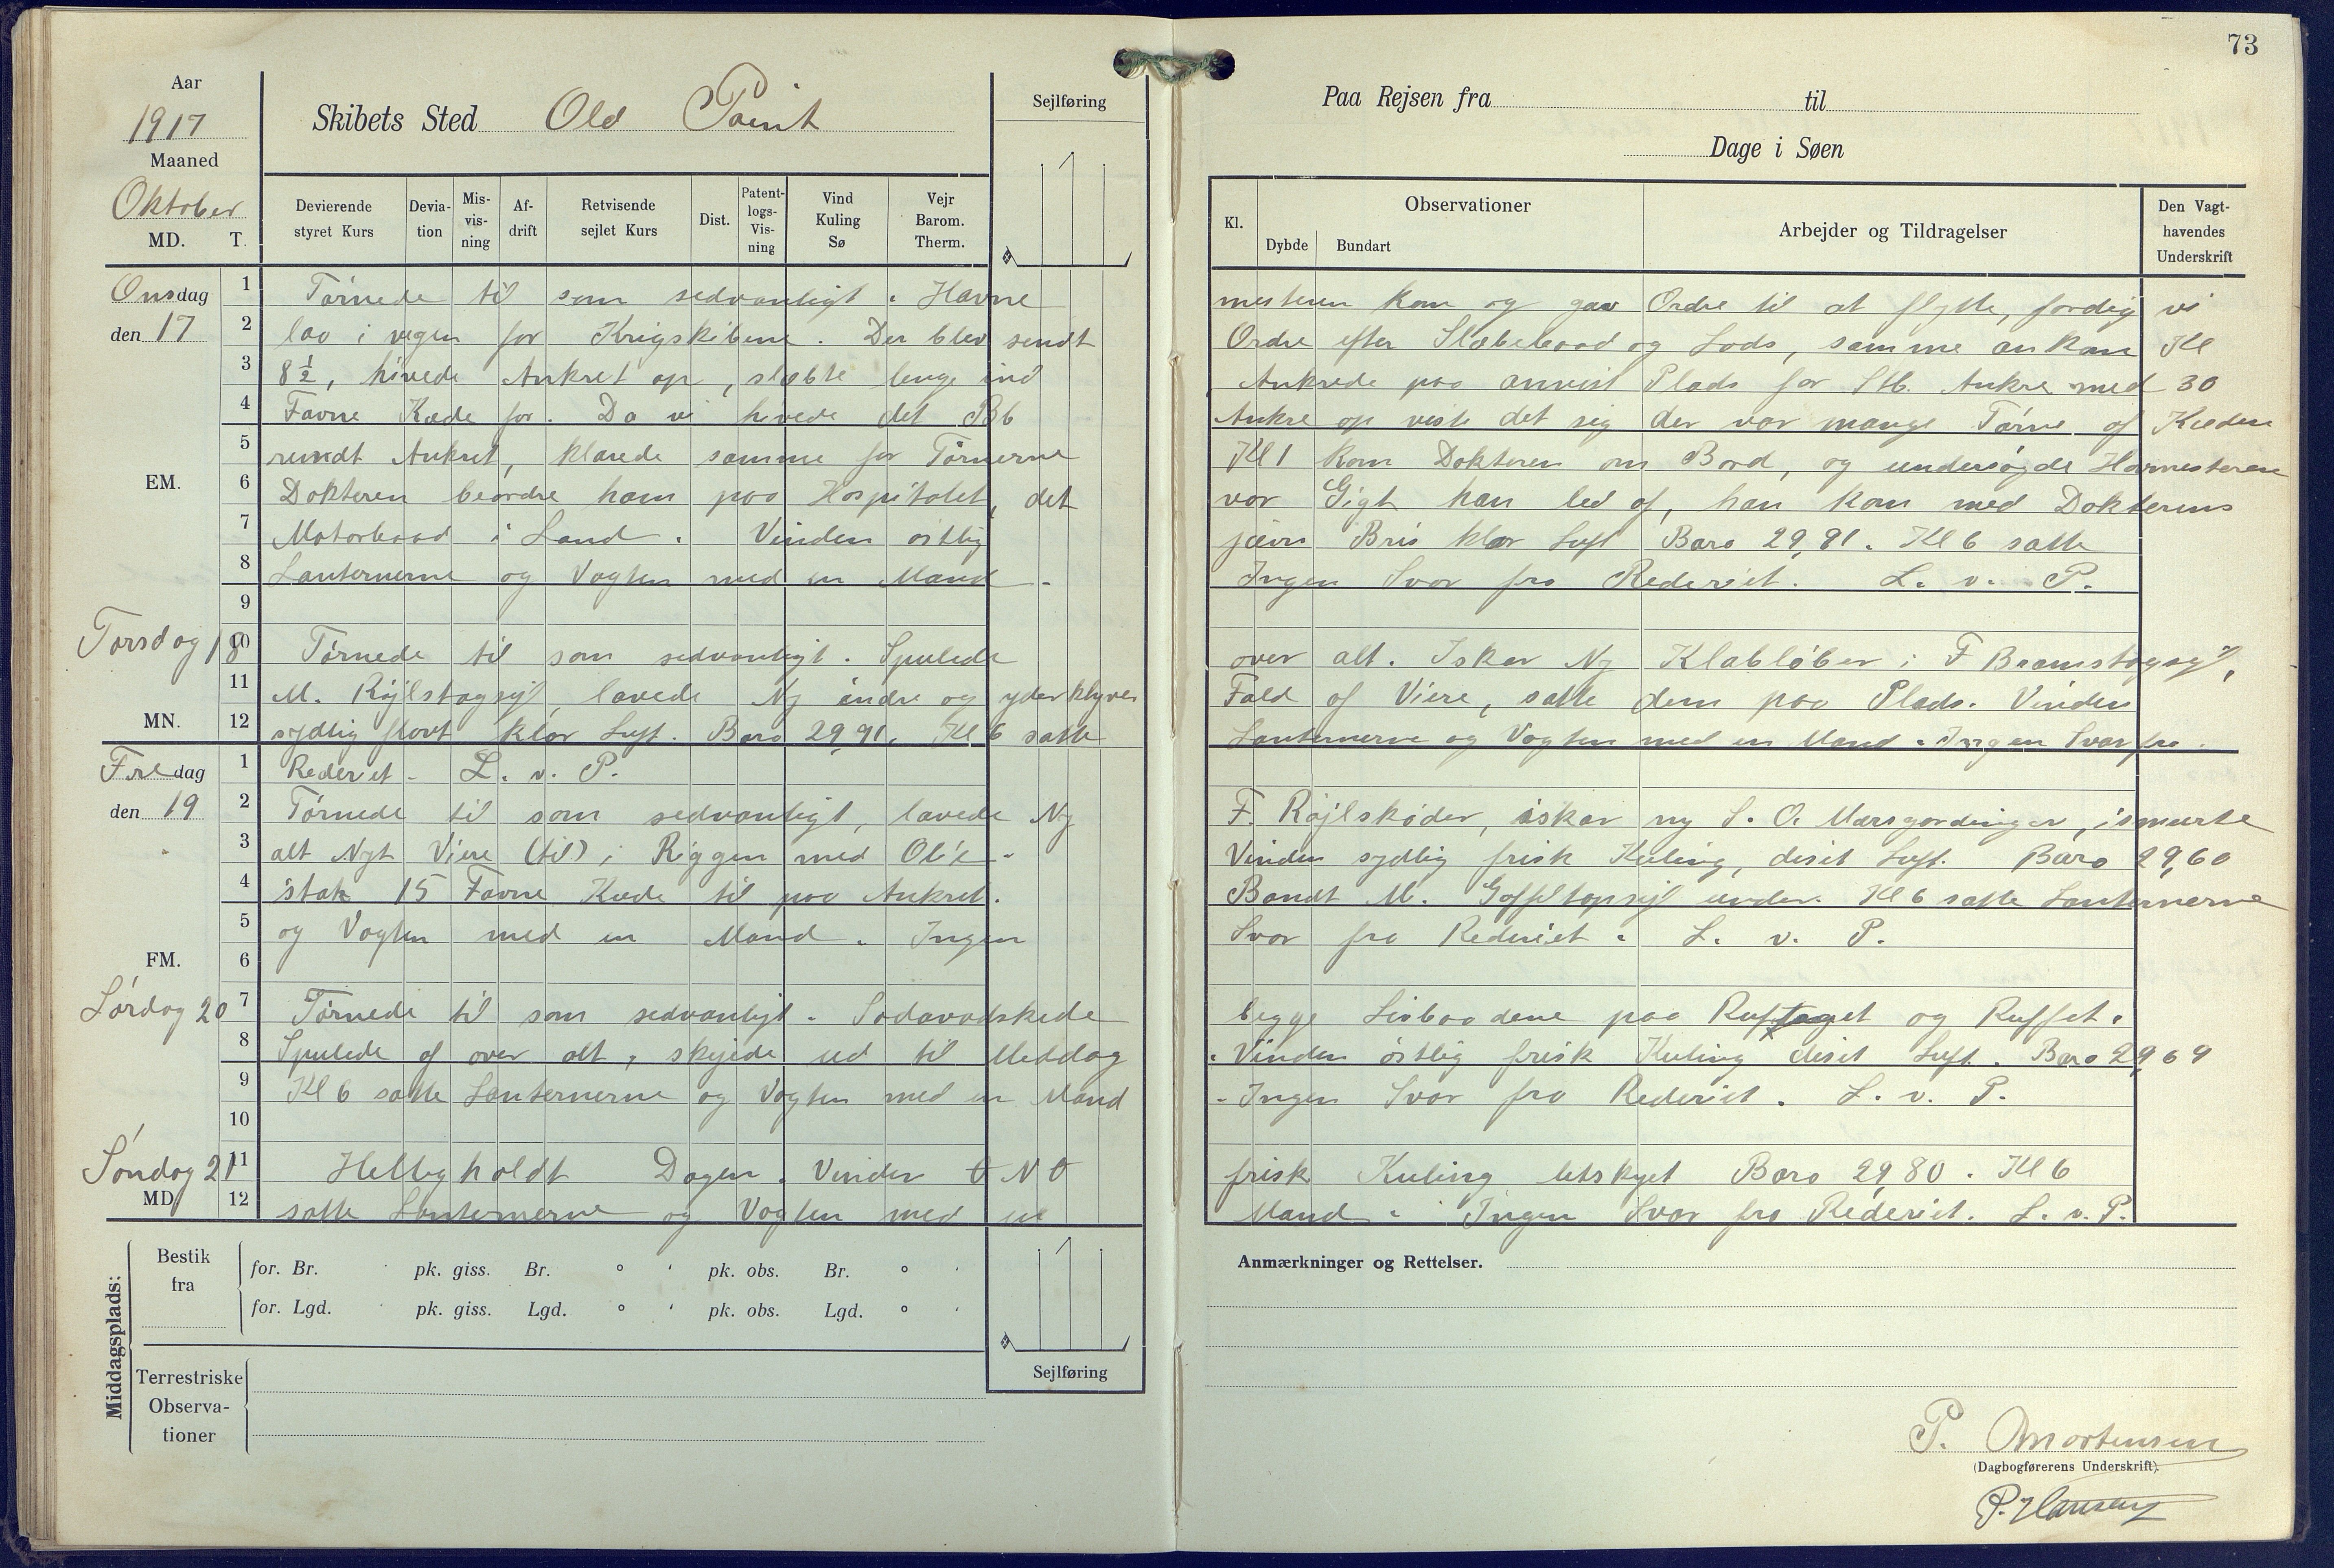 73
Aar
1917
Maaned
Oktober
MD. T.
Skibets Sted Old Point
Sejlføring
Paa Rejsen fra til
Dage i Søen
Devierende styret Kurs
Devia-tion
Mis-vis-ning
Af-drift
Retvisende sejlet Kurs
Dist.
Patent-logs-Vis-ning
Vind Kuling Sø
Vejr Barom. Therm.
Kl.
Observationer
Dybde Bundart
Arbejder og Tildragelser
Den Vagt-havendes Underskrift
Onsdag 1 Tørnede til som sedvanligt. Havne mesteren kom og gav Ordre til at flytte, fordig vi
den 17 2 laa i vegen for Krigskibene. Der blev sendt Ordre efter Slæbebaad og Lods, samme ankom Kl
3 8½, hivede Ankret op, slæbte lenge ind Ankrede paa anvist Plads for Stb. Ankre med 30
4 Favne Kæde for. Da vi hivede det Bb Ankre op viste det sig der var mange Tørne af Kæden
5 rundt Ankret, klarede samme for Tørnerne Kl 1 kom Doktoren om Bord, og undersøgde Hovmesteren
EM. 6 Doktoren beordre ham paa Hospitalet, det var Gigt han led af, han kom med Dokterens
7 Motorbaad i Land. Vinden østlig jævn Bris klar Luft Baro 29,81. Kl 6 satte
8 Lanternerne og Vagten med en Mand. Ingen Svar fra Rederiet. L. v. P.
9
Torsdag 18 10 Tørnede til som sedvanligt. Spulede over alt. Iskar Ny Klabløber i F Bramstagsejl,
11 M. Røjlstagsejl, lavede Ny indre og yder klyver Fald af Viere, satte dem paa Plads. Vinden
MN. 12 sydlig flovt klar Luft. Baro 29,91. Kl 6 satte Lanternerne og Vagten med en Mand. Ingen Svar fra.
Fredag 1 Rederiet - L. v. P.
den 19 2 Tørnede til som sedvanligt, lavede Ny F. Røjlskøder, iskar ny S. O. Mærsgordinger, ismurte
3 alt Nyt Viere (til) i Riggen med Olie. Vinden sydlig frisk Kuling, diset Luft. Baro 29,60
4 stak 15 Favne Kæde til paa Ankret. Bandt M. Gaffeltopsejl under. Kl 6 satte Lanternerne
5 og Vagten med en Mand. Ingen Svar fra Rederiet. L. v. P.
FM. 6
Lørdag 20 7 Tørnede til som sedvanligt. Sodavadskede begge Livbaadene paa Ruftaget og Ruffet.
8 Spulede af over alt, skejede ud til Meddag. Vinden østlig frisk Kuling diset Luft. Baro 29,69
9 Kl 6 satte Lanternerne og Vagten med en Mand - Ingen Svar fra Rederiet. L. v. P.
10
Søndag 21 11 Hellig holdt Dagen. Vinden O N O frisk Kuling letskyet Baro 29,80. Kl 6
MD. 12 satte Lanternerne og Vagten med en Mand. Ingen Svar fra Rederiet. L. v. P.
Middagsplads:
Bestik fra
for. Br. pk. giss. Br. ° ' pk. obs. Br. ° '
for. Lgd. pk. giss. Lgd. ° ' pk. obs. Lgd. ° '
Sejlføring
Terrestriske Observa-tioner
Anmærkninger og Rettelser.
P. Mortensen
(Dagbogførerens Underskrift).
P. Hansen